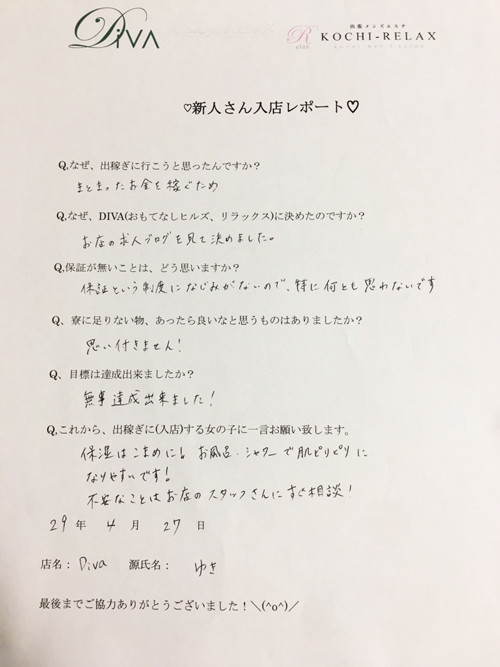 DiVA
R
elax
出張メンズエステ
KOCHI-RELAX
♡新人さん入店レポート♡
Q,なぜ、出稼ぎに行こうと思ったんですか？
まとまったお金を稼ぐため
Q,なぜ、DIVA(おもてなしヒルズ、リラックス)に決めたのですか？
お店の求人ブログを見て決めました。
Q,保証が無いことは、どう思いますか？
保証という制度になじみがないので、特に何とも思わないです
Q、寮に足りない物、あったら良いなと思うものはありましたか？
思い付きません!
Q、目標は達成出来ましたか？
無事達成出来ました!
Q,これから、出稼ぎに(入店)する女の子に一言お願い致します。
保湿はこまめに! お風呂・シャワーで肌ピリピリに
なりやすいです!
不安なことはお店のスタッフさんにすぐ相談!
29 年 4 月 27 日
店名： Diva 源氏名： ゆき
最後までご協力ありがとうございました！＼(^o^)／